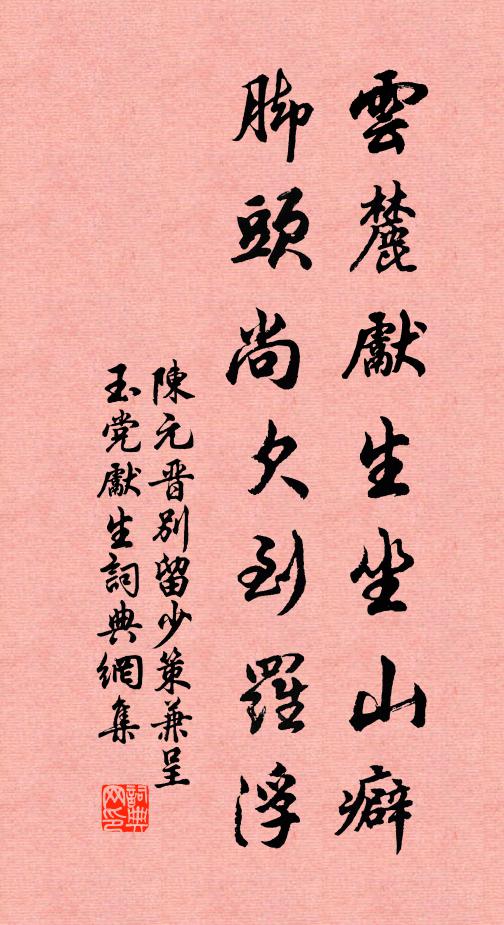 雲麓獻生坐山癖
脚頭尚欠到羅浮
陳元晋別留少策兼呈
玉党獻生詞典網集
詞典网印